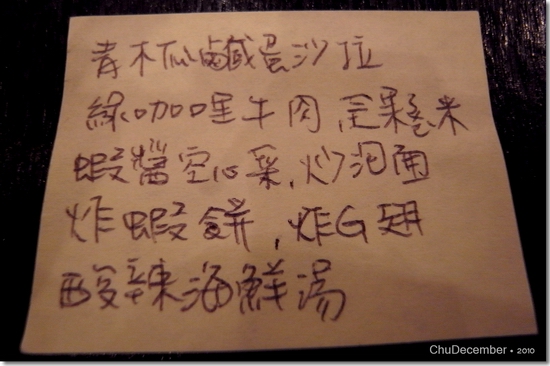 青木瓜鹹蛋沙拉
綠咖哩牛肉,
蝦醬空心菜,炒泡面
炸蝦餅,炸G翅
酸辣海鮮湯
ChuDecember • 2010